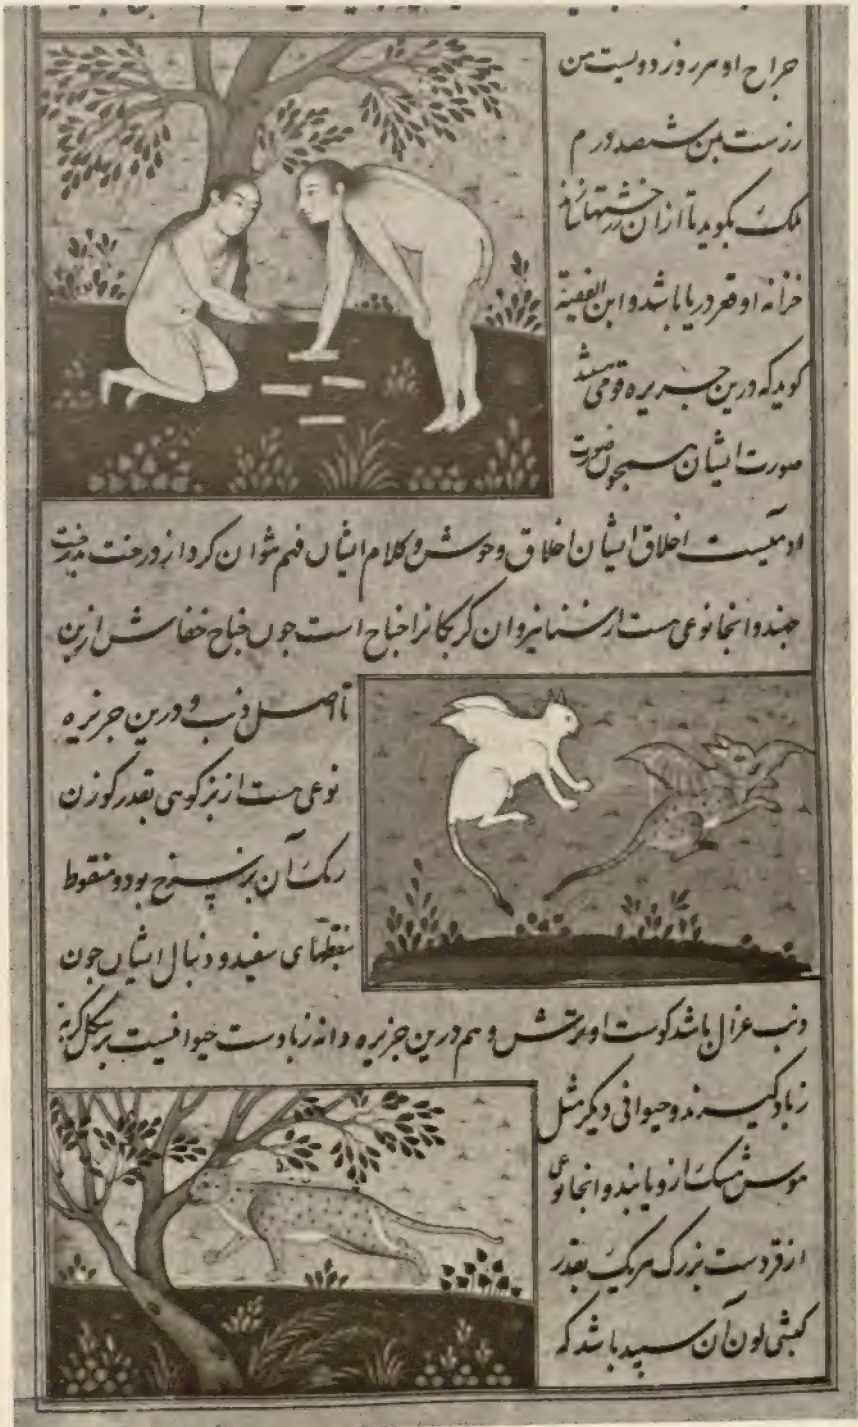 خراج او هر روز دویست من
زرست هر من ششصد درم
ملک بکوید تا از ان زر خشتها سازند
خزانه او قعر دریا باشد و ابن الفقیه
کوید که درین جزیره قومی
صورت ایشان همچون صورت
ادمیست اخلاق ایشان اخلاق وحوش و کلام ایشان فهم نتوان کرد از درخت بدرخت
جهند و انجا نوعی هست از سنانیر و ان کربکانرا جناح است جون جناح خفاش از بن
تا اصل ذنب و درین جزیره
نوعی هست از بز کوهی بقدر کوزن
رنک آن بر سرخ بود و منقوط
بنقطهای سفید و دنبال ایشان جون
ذنب غزال باشد کوشت او ترش و هم درین جزیره دابه زبادست حیوانیست بر شکل کربه
زباد کیرند و حیوانی دیکر مثل
موش مشک ازو یابند و انجا نوعی
از قردست بزرک هر یک بقدر
کبشی لون آن سپید باشد که